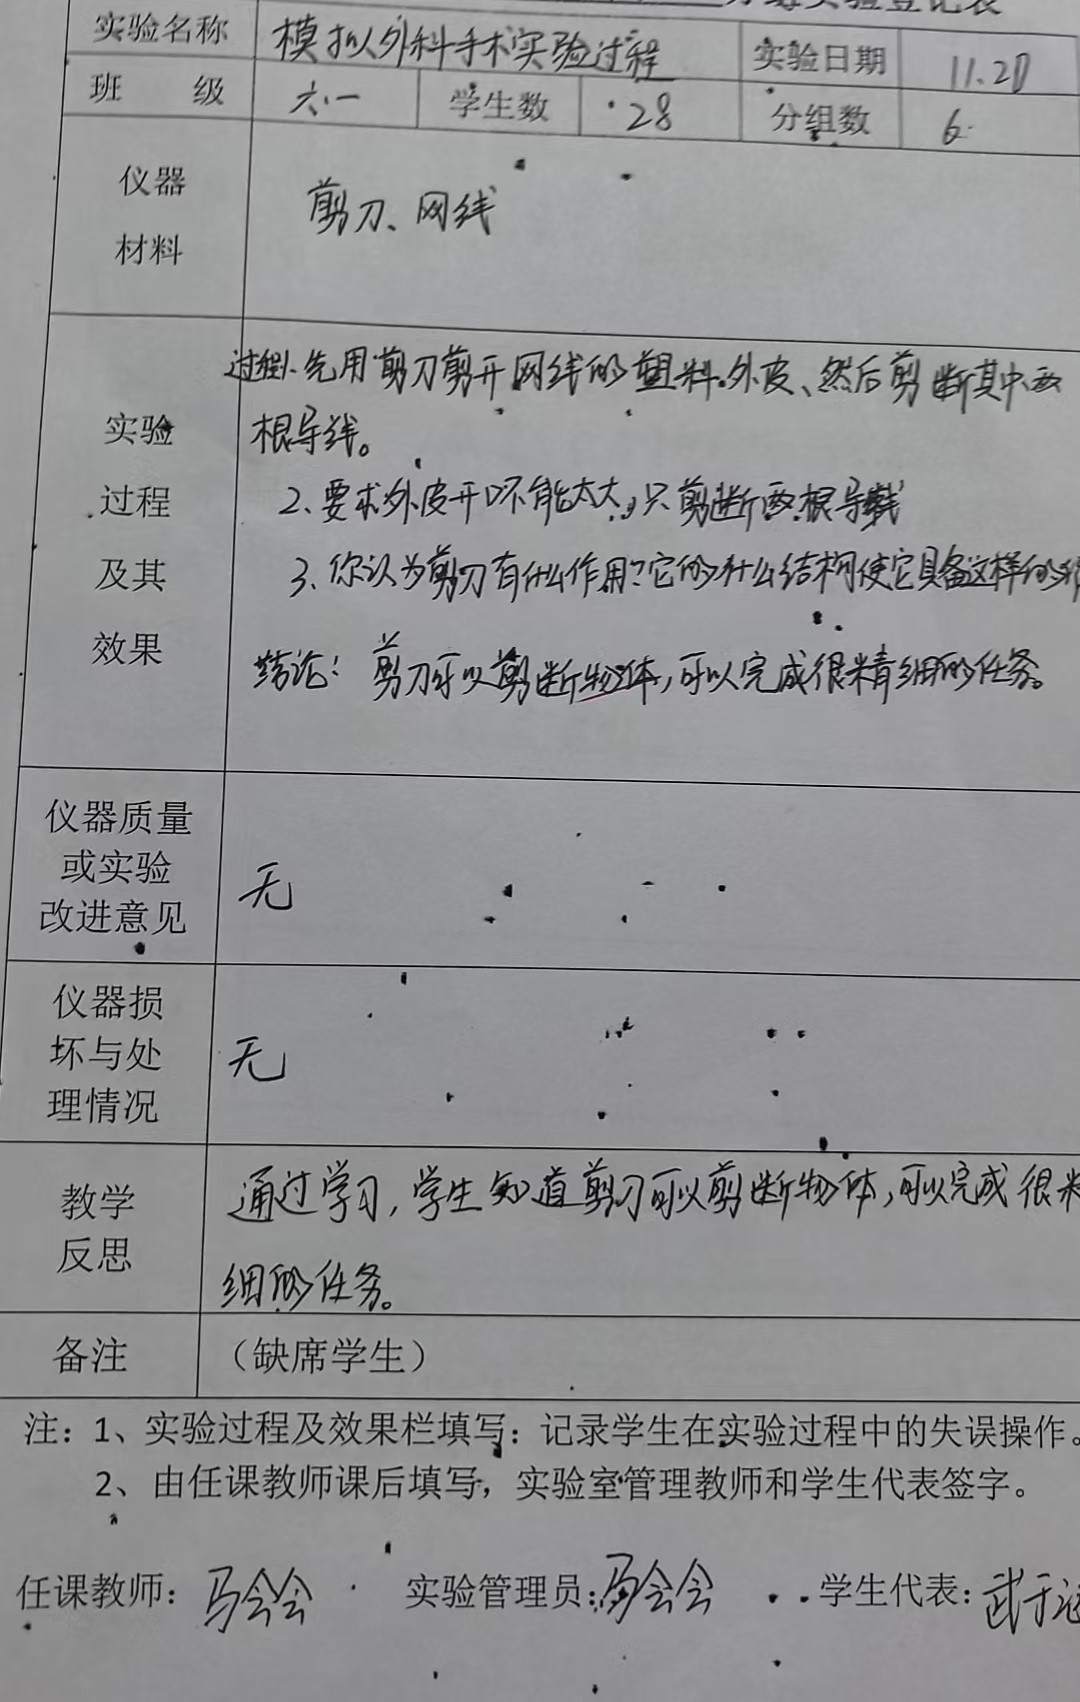 分组实验登记表
实验名称 模拟外科手术实验过程 实验日期 11.20
班 级 六.一 学生数 28 分组数 6
仪器
材料
剪刀、网线
过程1.先用剪刀剪开网线的塑料外皮、然后剪断其中两
根导线。
2、要求外皮开口不能太大,只剪断两根导线
3、你认为剪刀有什么作用?它的什么结构使它具备这样的
结论:剪刀可以剪断物体,可以完成很精细的任务。
实验
过程
及其
效果
仪器质量
或实验
改进意见
无
仪器损
坏与处
理情况
无
教学
反思
通过学习,学生知道剪刀可以剪断物体,可以完成很精
细的任务。
备注 (缺席学生)
注:1、实验过程及效果栏填写:记录学生在实验过程中的失误操作。
2、由任课教师课后填写,实验室管理教师和学生代表签字。
任课教师:马会会 实验管理员:马会会 学生代表:武于